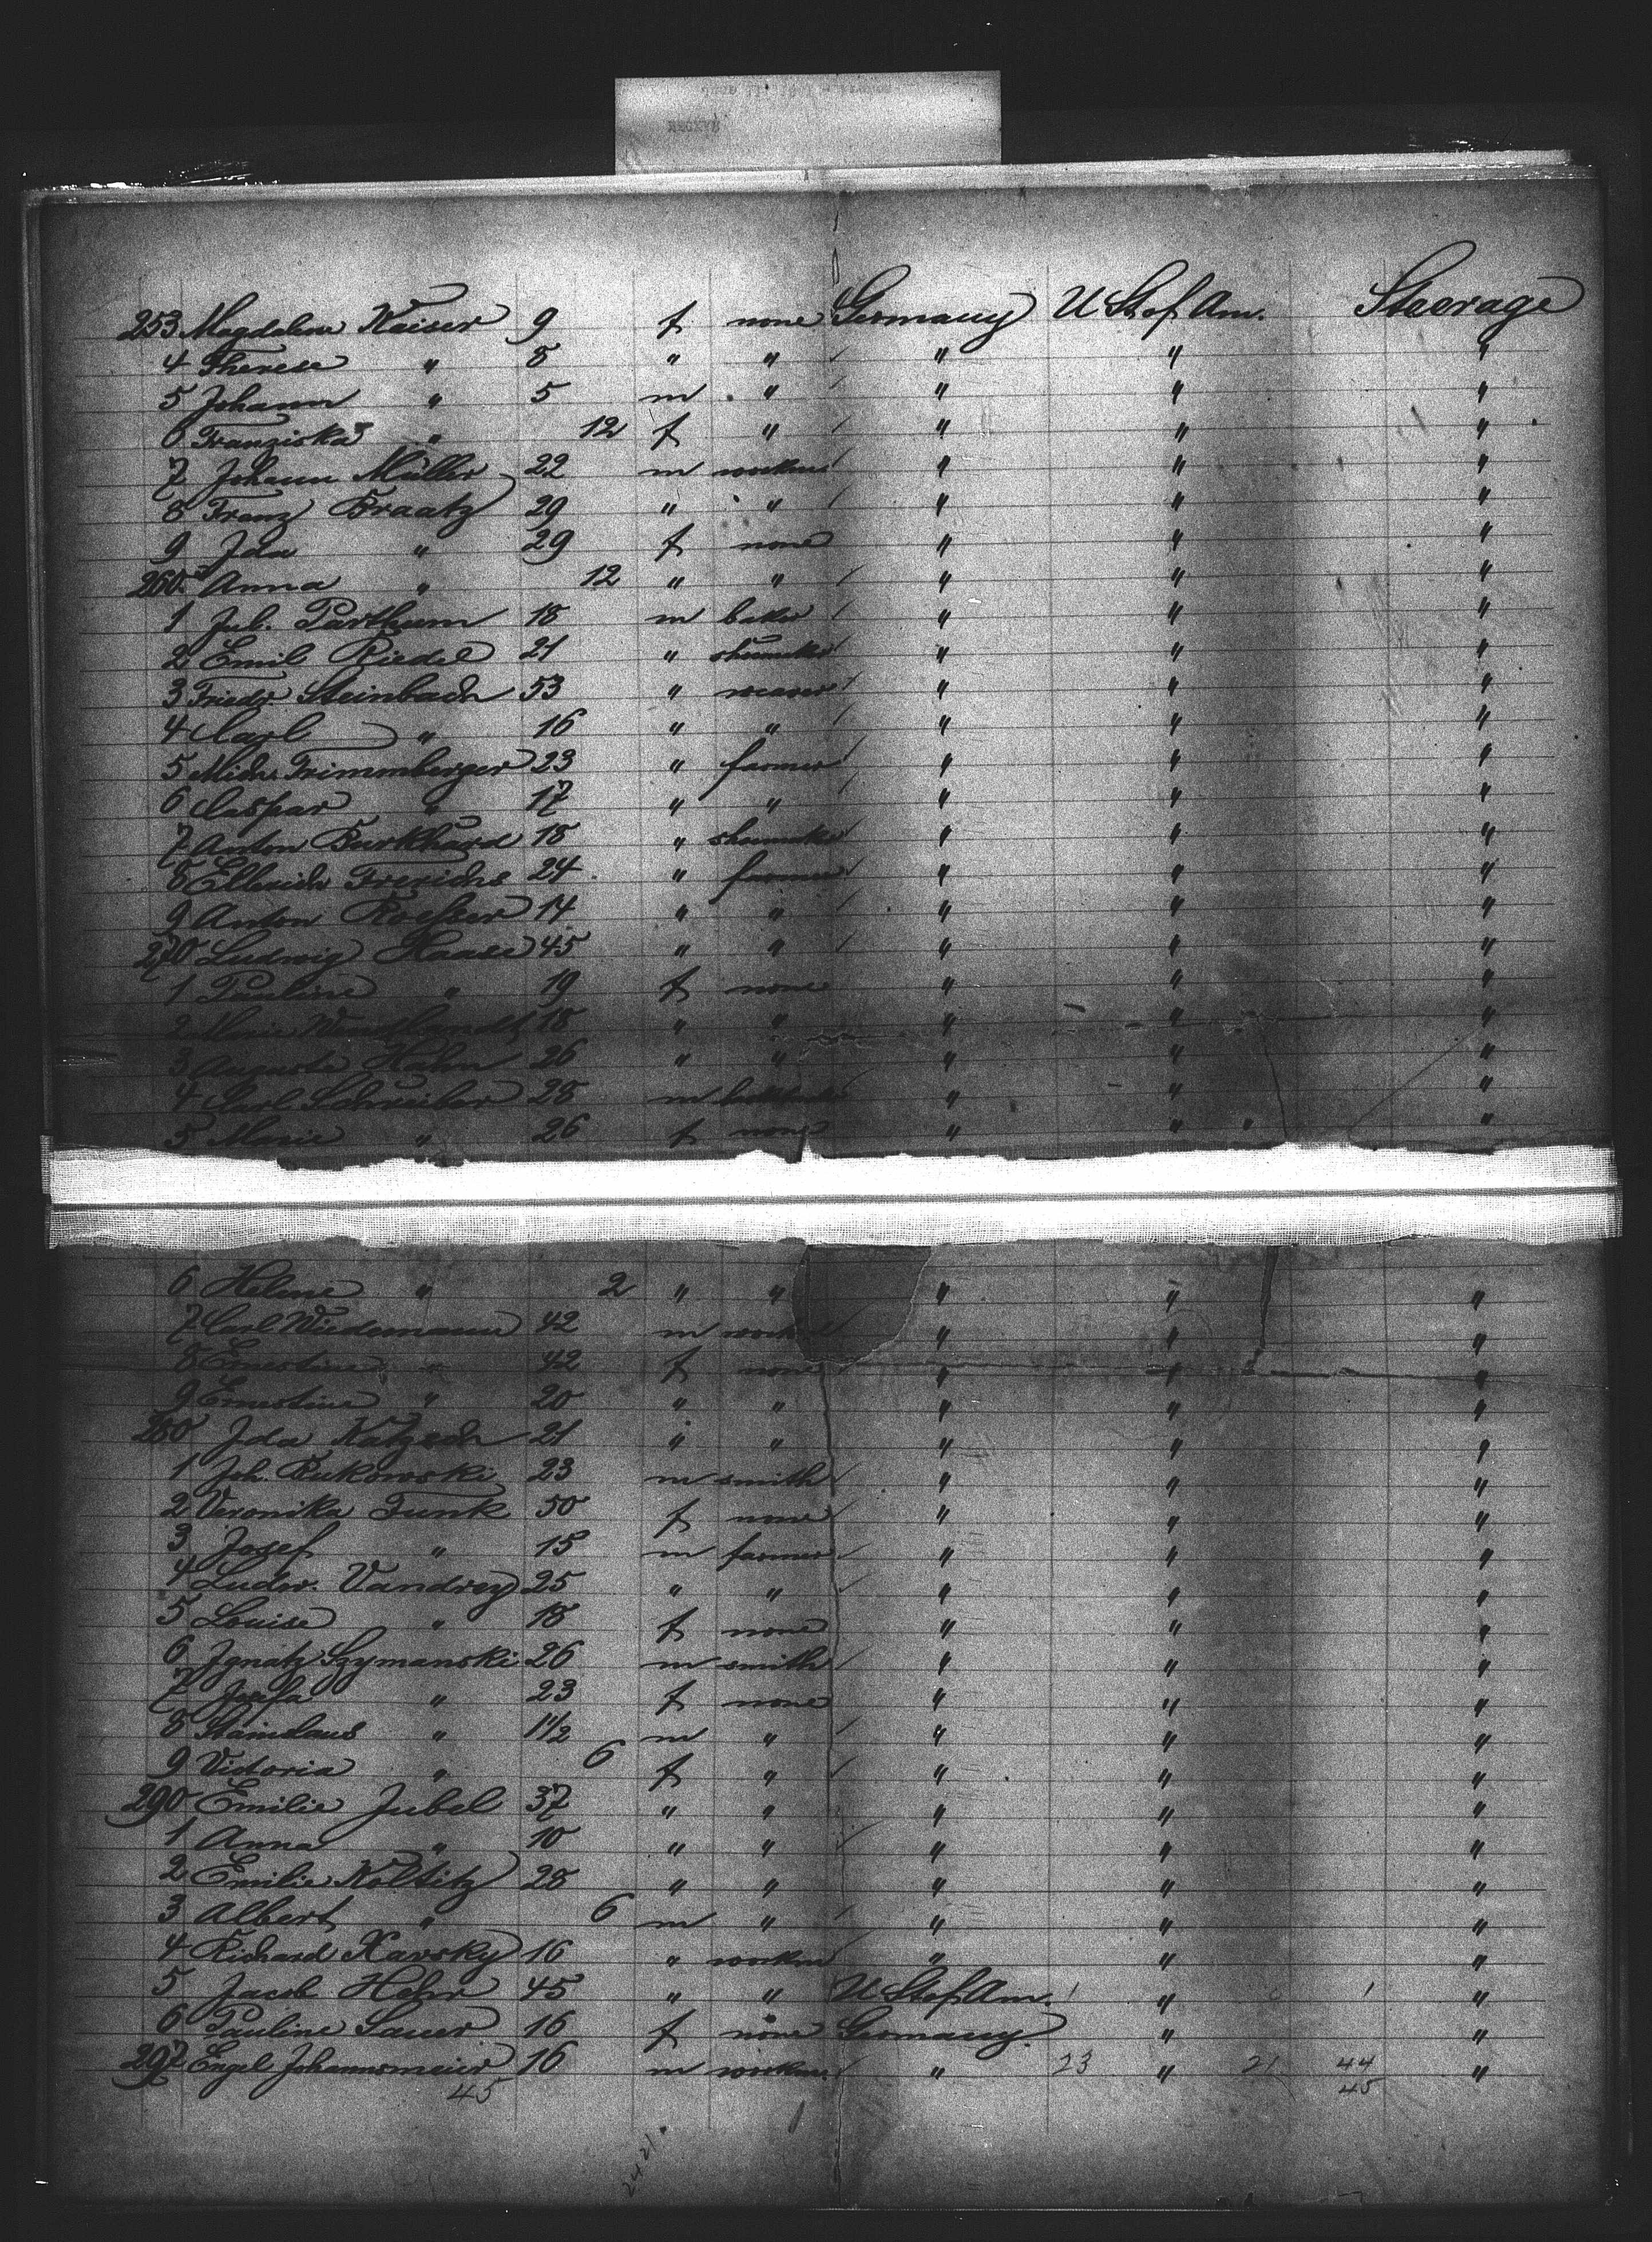 253 Magdalena Kaiser 9 f none Germany U St of Am. Steerage
4 Therese " 8 " " " " "
5 Johann " 5 m " " " "
6 Franziska " 12 f " " " "
7 Johann Müller 22 m workm " " "
8 Franz Braatz 29 " " " " "
9 Ida " 29 f none " " "
260 Anna " 12 " " " " "
1 Jul. Parthum 18 m baker " " "
2 Emil Riedel 21 " shoemaker " " "
3 Friedr. Steinbach 53 " weaver " " "
4 Carl " 16 " " " " "
5 Mich. Trimmberger 23 " farmer " " "
6 Caspar " 17 " " " " "
7 Anton Burkhard 18 " shoemaker " " "
8 Frerichs 24 " farmer " " "
9 Anton Roesser 14 " " " " "
270 Ludwig Haase 45 " " " " "
1 Pauline " 19 f none " " "
2 Marie Wendlandt 18 " " " " "
3 Auguste Hahn 26 " " " " "
4 Carl Schreiber 28 m " " "
5 Marie " 26 f none " " "
6 Helene " 2 " " " " "
7 Carl Wiedemann 42 m workm " " "
8 Ernestine " 42 f none " " "
9 Ernestine " 20 " " " " "
280 Ida Katzsch 21 " " " " "
1 Joh. Bukowski 23 m smith " " "
2 Veronika Funk 50 f none " " "
3 Josef " 15 m farmer " " "
4 Ludw. Vandrey 25 " " " " "
5 Louise " 18 f none " " "
6 Ignatz Szymanski 26 m smith " " "
7 Josefa " 23 f none " " "
8 Stanislaus " 1 1/2 m " " " "
9 Victoria " 6 f " " " "
290 Emilie Jubel 37 " " " " "
1 Anna " 10 " " " " "
2 Emilie Koltitz 28 " " " " "
3 Albert " 6 m " " " "
4 Richard Kavsky 16 " workm " " "
5 Jacob Hehr 45 " " U St of Am. 1 " 1 "
6 Pauline Sauer 16 f none Germany " "
297 Engel Johannsmeier 16 m workm. " 23 " 21 44 "
45 45
24 21